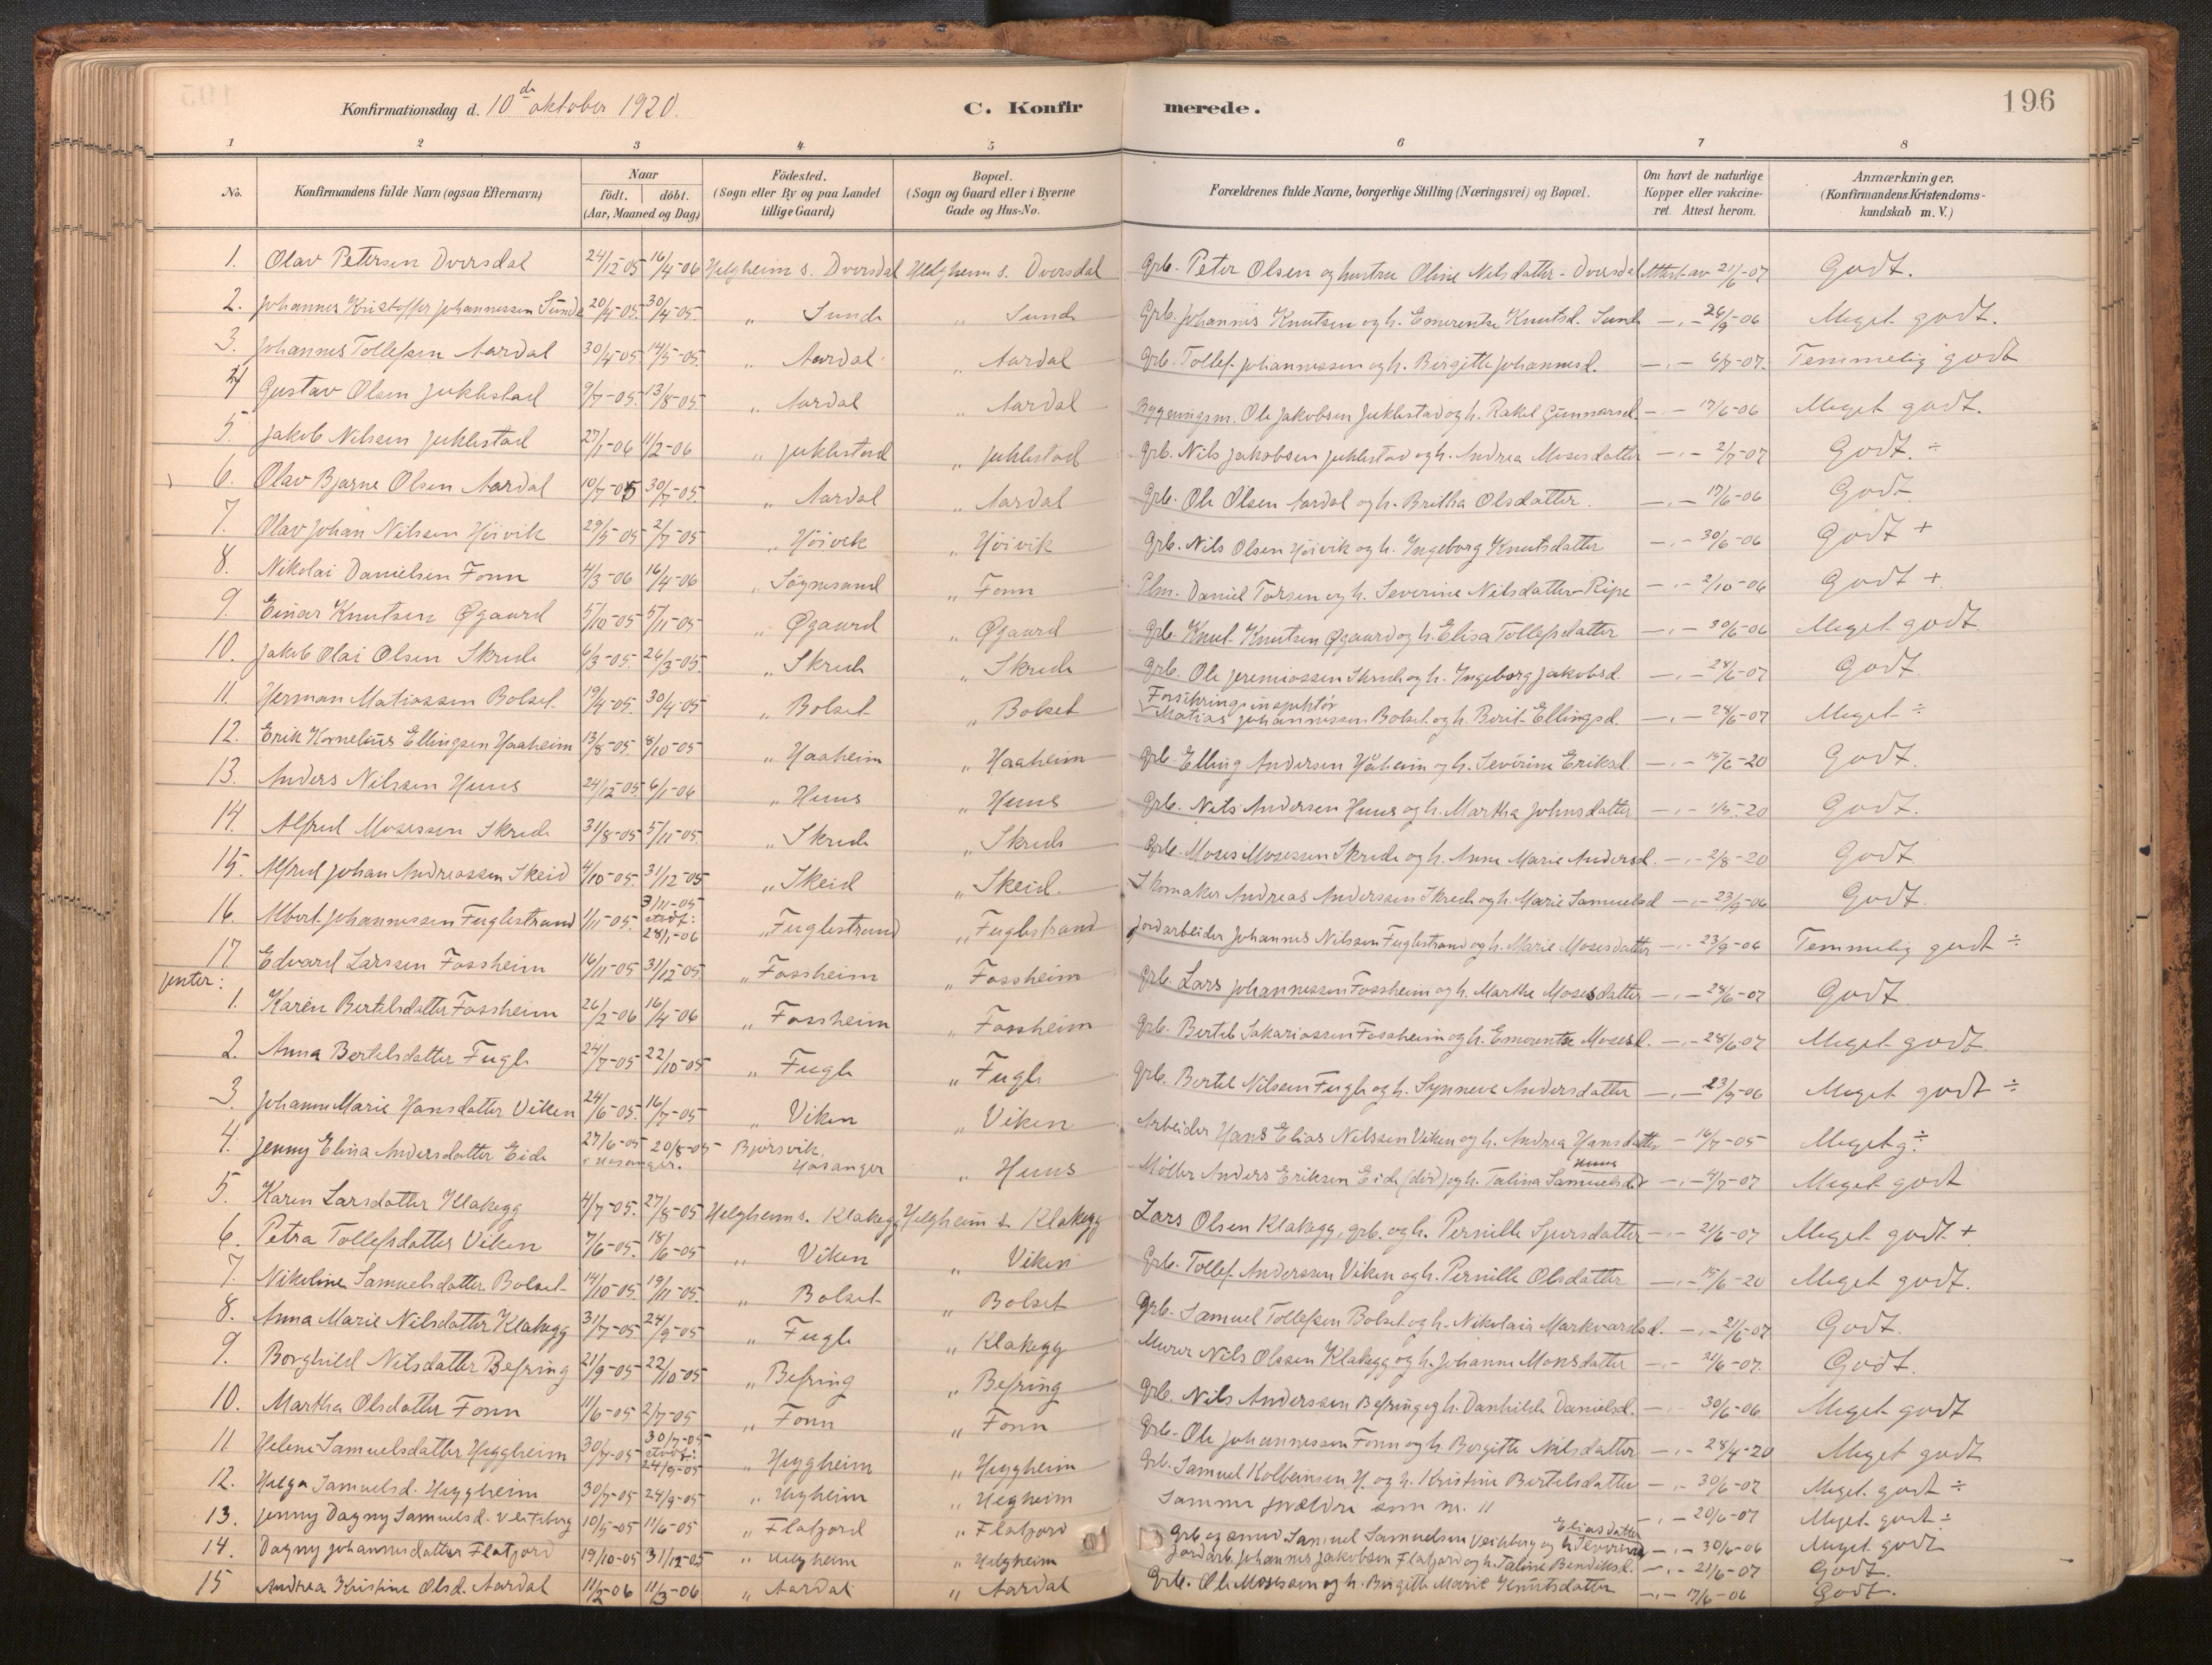 Konfirmationsdag d. 10de oktober 1920. C. Konfirmerede. 196
1 2 3 4 5 6 7 8
No. Konfirmandens fulde Navn (ogsaa Efternavn) Naar födt. döbt. (Aar, Maaned og Dag) Födested. (Sogn eller By og paa Landet tillige Gaard) Bopæl. (Sogn og Gaard eller i Byerne Gade og Hus-No. Forældrenes fulde Navne, borgerlige Stilling (Næringsvei) og Bopæl. Om havt de naturlige Kopper eller vakcineret. Attest herom. Anmærkninger, (Konfirmandens Kristendomskundskab m. V.)
1. Olav Petersen Dvergsdal 24/12-05 16/4-06 Helgheim s. Dvergsdal Helgheim s. Dvergsdal Grb. Peter Olsen og hustru Oline Nilsdatter - Dvergsdal Attest av 21/6-07 Godt.
2. Johannes Kristoffer Johannessen Sunde 20/4-05. 30/4-05. " Sunde " Sunde Grb. Johannes Knutsen og h. Emerentse Knutsd. Sunde —"— 26/9-06 Meget godt.
3. Johannes Tollefsen Aardal 30/4-05 14/5-05. " Aardal " Aardal Grb. Tollef Johannessen og h. Birgitte Johannesd. —"— 6/7-07. Temmelig godt
4 Gustav Olsen Juklestad 9/7-05. 13/8-05 " Aardal " Aardal Bygningsm. Ole Jakobsen Juklestad og h. Rakel Gunnarsd —"— 17/6-06 Meget godt.
5. Jakob Nilsen Juklestad 27/1-06 11/2-06 " Juklestad " Juklestad Grb. Nils Jakobsen Juklestad og h. Andrea Mosesdatter —"— 2/7-07 Godt. ÷
6. Olav Bjarne Olsen Aardal 10/7-05 30/7-05. " Aardal " Aardal Grb. Ole Olsen Aardal og h. Britha Olsdatter. —"— 17/6-06 Godt
7. Olav Johan Nilssen Höivik 29/5-05 2/7-05 " Höivik " Höivik Grb. Nils Olsen Höivik og h. Ingeborg Knutsdatter —"— 30/6-06 Godt +
8. Nikolai Danielsen Fonn 4/3-06 16/4-06 " Sögnesand " Fonn Plm. Daniel Torsen og h. Severine Nilsdatter Ripe —"— 2/10-06 Godt +
9. Einar Knutsen Øgaard 5/10-05 5/11-05 " Øgaard " Øgaard Grb Knut Knutsen Øgaard og h. Elisa Tollefsdatter —"— 30/6-06 Meget godt
10. Jakob Olai Olsen Skrede 6/3-05. 26/3-05. " Skrede " Skrede Grb. Ole Jeremiassen Skrede og h. Ingeborg Jakobsd. —"— 28/6-07 Godt
11. Herman Matiassen Bolset 19/4-05. 30/4-05 " Bolset " Bolset Forsikringsinspektör Matias Johannessen Bolset og h. Berit Ellingsd. —"— 28/6-07 Meget ÷
12. Erik Kornelius Ellingsen Haaheim 13/8-05. 8/10-05 " Haaheim " Haaheim Grb. Elling Andersen Håheim og h. Severine Eriksd. —"— 15/6-20 Godt.
13. Anders Nilssen Huus 24/12-05 6/1-06 " Huus " Huus Grb. Nils Andersen Huus og h. Martha Johnsdatter —"— 20 Godt.
14. Alfred Mosessen Skrede 31/8-05 5/11-05. " Skrede " Skrede Grb. Moses Mosessen Skrede og h. Anne Marie Andersd. —"— 2/8-20 Godt
15. Alfred Johan Andreassen Skeid 4/10-05. 31/12-05 " Skeid " Skeid. Skomaker Andreas Anderssen Skrede og h. Marie Samuelsd —"— 23/9-06 Godt.
16. Albert Johannessen Fuglestrand 1/11-05. 3/11-05 stadf: 28/1-06 " Fuglestrand " Fuglestrand Jordarbeider Johannes Nilssen Fuglestrand og h. Marie Mosesdatter —"— 23/9-06 Temmelig godt ÷
17 Edvard Larssen Fossheim 16/11-05 31/12-05 " Fossheim " Fossheim Grb. Lars Johannessen Fossheim og h. Marthe Mosesdatter —"— 28/6-07 Godt.
Jenter:
1. Karen Bertelsdatter Fossheim 26/2-06 16/4-06 " Fossheim " Fossheim Grb. Bertel Sakariassen Fossheim og h. Emerentse Mosesd. —"— 28/6-07 Meget godt
2. Anna Bertelsdatter Fugle 24/7-05 22/10-05 " Fugle " Fugle Grb. Bertel Nilssen Fugle og h. Synneve Andersdatter —"— 23/9-06 Meget godt ÷
3. Johanne Marie Hansdatter Viken 24/6-05. 16/7-05 " Viken " Viken Arbeider Hans Elias Nilssen Viken og h. Andrea Hansdatter — 16/7-05 Meget g. ÷
4. Jenny Elina Andersdatter Eide 27/6-05 20/8-05 i Hosanger. Bjørsvik, Hosanger " Huus Möller Anders Eriksen Eide (död) og h. Talina Samuelsd Huus —"— 4/7-07 Meget godt
5. Karen Larsdatter Klakegg 4/7-05. 27/8-05 Helgheim s. Klakegg Helgheim s. Klakegg Lars Olsen Klakegg, grb. og h. Pernille Sjursdatter —"— 21/6-07 Meget godt +
6. Petra Tollefsdatter Viken 7/6-05. 18/6-05 " Viken " Viken Grb. Tollef Anderssen Viken og h. Pernille Olsdatter —"— 15/6-20 Meget godt.
7. Nikoline Samuelsdatter Bolset 14/10-05. 19/11-05. " Bolset " Bolset Grb. Samuel Tollefsen Bolset og h. Nikolaia Markvardsd. —"— 21/6-07 Godt.
8. Anna Marie Nilsdatter Klakegg 31/7-05 24/9-05 " Fugle " Klakegg Murer Nils Olssen Klakegg og h. Johanne Monsdatter —"— 21/6-07. Godt.
9. Borghild Nilsdatter Befring 21/9-05 22/10-05 " Befring " Befring Grb. Nils Anderssen Befring og h. Danhilde Danielsd. — 30/6-06 Meget godt
10. Martha Olsdatter Fonn 11/6-05 2/7-05 " Fonn " Fonn Grb. Ole Johannessen Fonn og h. Borgitte Nilsdatter —"— 28/4-20 Meget godt
11 Helene Samuelsdatter Heggheim 30/7-05 30/7-05 stadf: 24/9-05 " Heggheim " Heggheim Grb. Samuel Kolbeinsen H. og h. Kristine Bertelsdatter —"— 30/6-07 Meget godt ÷
12. Helga Samuelsd. Heggheim 30/7-05 24/9-05 " Hegheim " Hegheim Samme forældre som nr. 11 —"— 20/6-07 Meget godt ÷
13. Jenny Dagny Samuelsd. 10/5-05 11/6-05 " Flatjord " Flatjord Grb og smed Samuel Samuelsen og h. Severine Eliasdatter —"— 30/6-06 Meget godt
14. Dagny Johannesdatter Flatjord 19/10-05 31/12-05 " Helgheim " Helgheim Jordarb. Johannes Jakobsen Flatjord og h. Taline Bendiksd. —"— 21/6-07 Godt.
15 Andrea Kristine Olsd. Aardal 11/2-06 11/3-06 " Aardal " Aardal Grb. Ole Mosessen og h. Birgitte Marie Knutsdatter —"— 17/6-06 Godt.